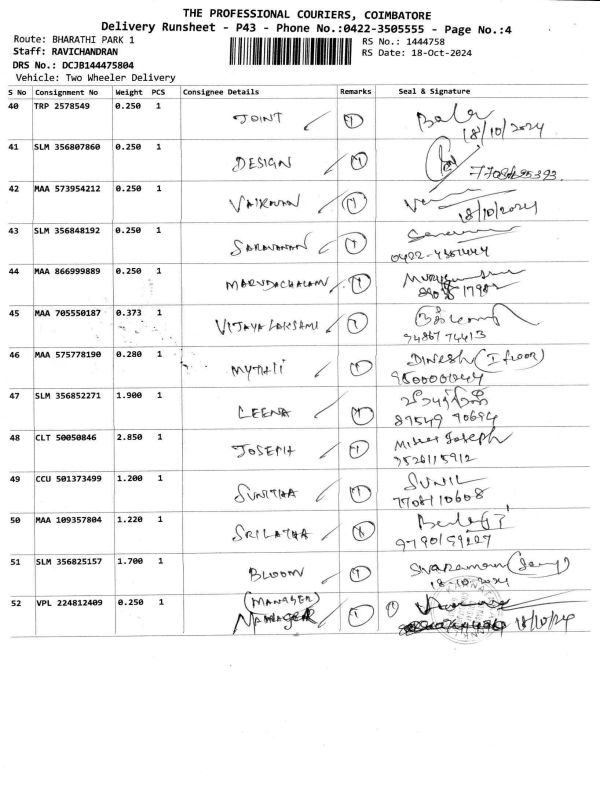 THE PROFESSIONAL COURIERS, COIMBATORE
Delivery Runsheet - P43 - Phone No.:0422-3505555 - Page No.:4
Route: BHARATHI PARK 1
RS No.: 1444758
Staff: RAVICHANDRAN
RS Date: 18-Oct-2024
DRS No.: DCJB144475804
Vehicle: Two Wheeler Delivery
S No Consignment No Weight PCS Consignee Details Remarks Seal & Signature
40 TRP 2578549 0.250 1 JOINT Bala
18/10/2024
41 SLM 356807860 0.250 1 DESIGN
42 MAA 573954212 0.250 1 VAIRAVAN
18/10/2024
43 SLM 356848192 0.250 1 SARAVANAN
44 MAA 866999889 0.250 1 MARUDACHALAM
45 MAA 705550187 0.373 1 VIJAYA LAKSAMI
94867 74413
46 MAA 575778190 0.280 1 MYTHLI DINESH (I floor)
47 SLM 356852271 1.900 1 LEENA
89549 90694
48 CLT 50050846 2.850 1 JOSEPH Joseph
9526115912
49 CCU 501373499 1.200 1 SUNITHA SUNIL
7708110608
50 MAA 109357804 1.220 1 SRILATHA
51 SLM 356825157 1.700 1 BLOOM
18-10-2024
52 VPL 224812409 0.250 1 (MANAGER)
18/10/24